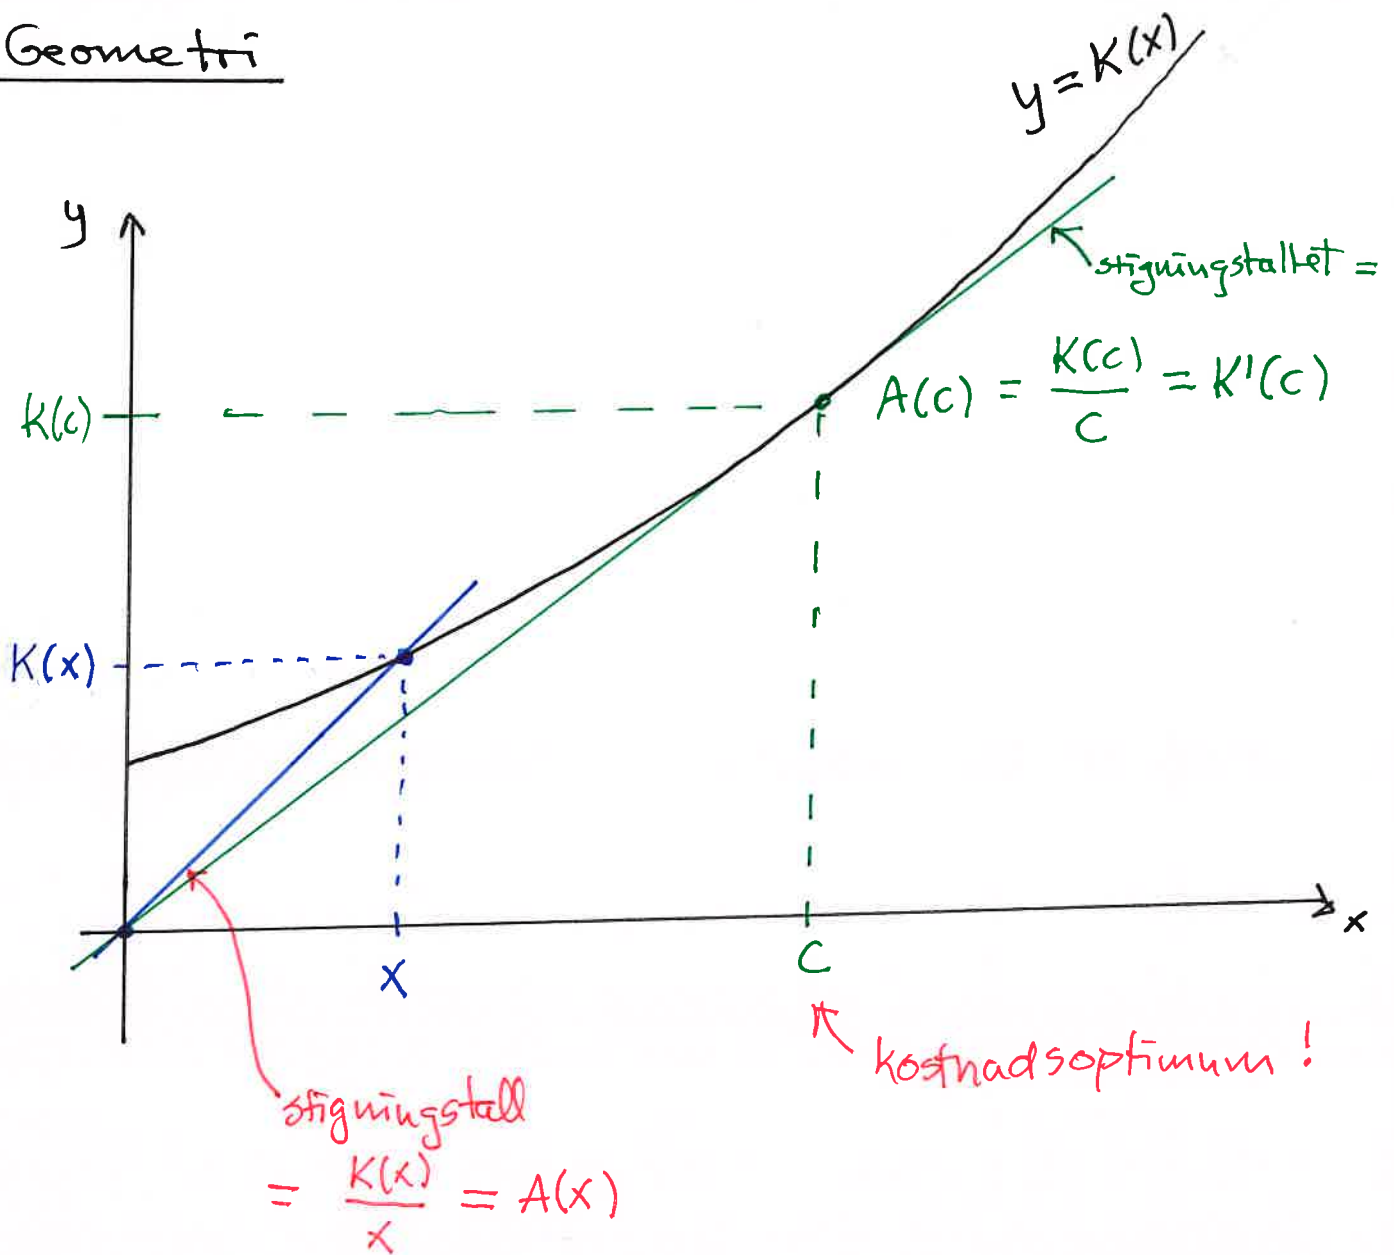 Geometri
y = K(x)
y
stigningstallet =
A(c) = K(c)/c = K'(c)
K(c)
K(x)
x
x
c
kostnadsoptimum !
stigningstall
= K(x)/x = A(x)